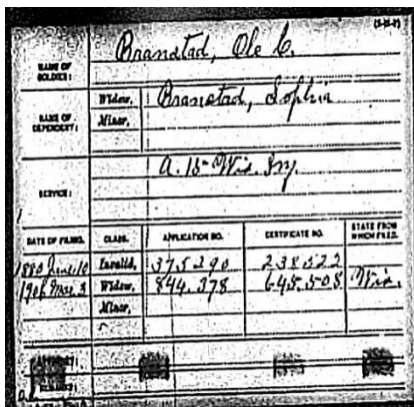 (3-18-27)
NAME OF SOLDIER: Branstad, Ole C.
NAME OF DEPENDENT: Widow, Branstad, Sophia
Minor,
SERVICE: A. 15 Wis. Inf.
DATE OF FILING. CLASS. APPLICATION NO. CERTIFICATE NO. STATE FROM WHICH FILED.
1880 June 10 Invalid, 375.290 238.522
1906 Mar. 3 Widow, 844.378 645.508 Wis.
Minor,